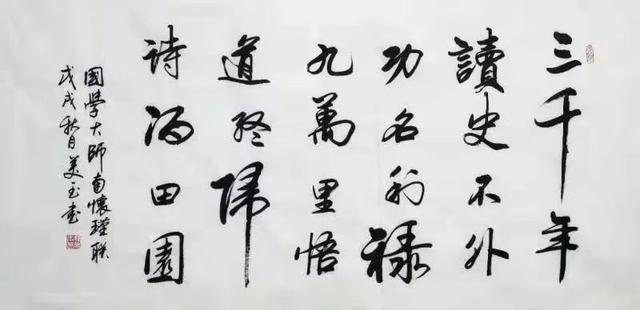 三千年
讀史不外
功名利祿
九萬里悟
道終歸
詩酒田園
國學大師南懷瑾联
戊戌秋月美玉书